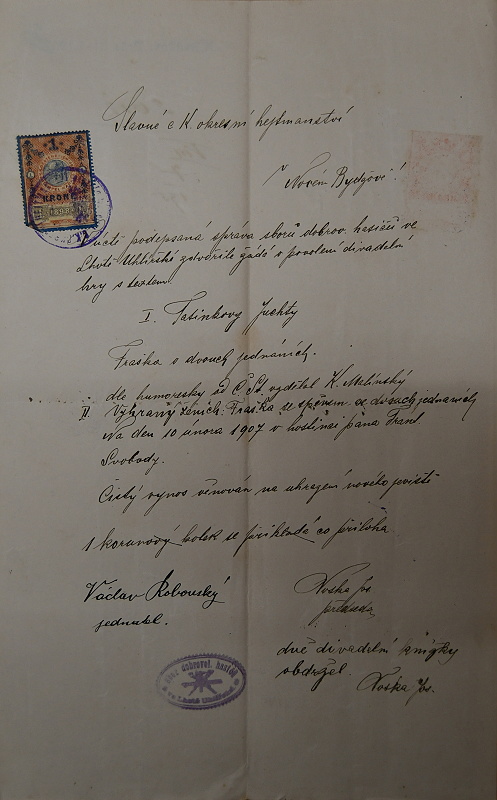 Slavné c K. okresní hejtmanství
v Novém Bydžově!
1
KRONE
1898
V úctě podepsaná správa sborů dobrov. hasičů ve
Lhotě Uhlířské zdvořile žádá o povolení divadelní
hry s textem.
I. Tatínkovy Juchty
Fraška o dvouch jednáních.
dle humoresky od Č. Št. vzdělal K. Malínský
II. Vybraný ženich. Fraška se zpěvem ve dvouch jednáních
Na den 10 února 1907 v hostinci pana Frant.
Svobody.
Čistý výnos věnován na uhrazení nového
1 korunový kolek se přikládá co příloha
Václav
jednatel.
Noska Jos
předseda
dvě divadelní knížky
obdržel.
Noska Jos.
Sbor dobrovol. hasičů